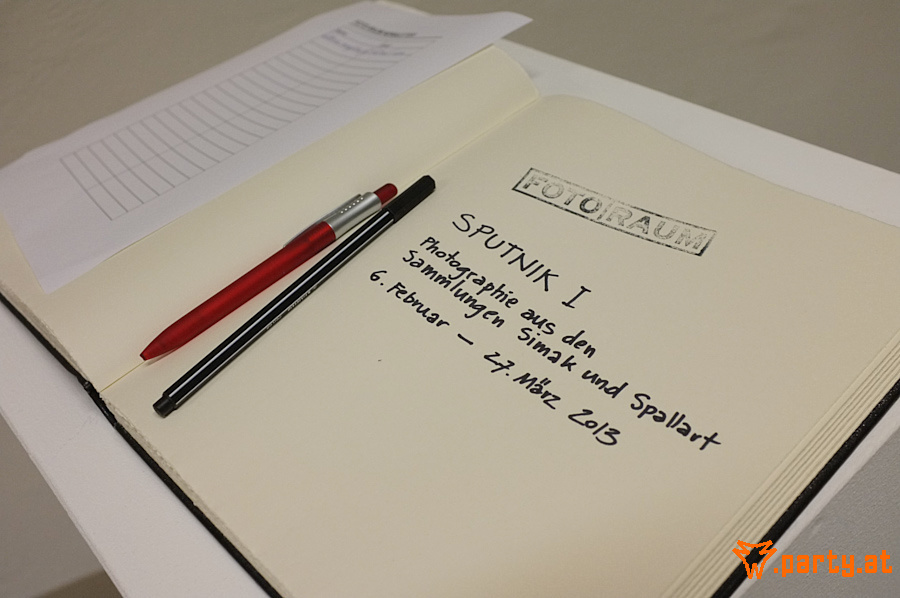 FOTO|RAUM
SPUTNIK I
Photographie aus den
Sammlungen Simak und Spallart
6. Februar – 27. März 2013
W.party.at